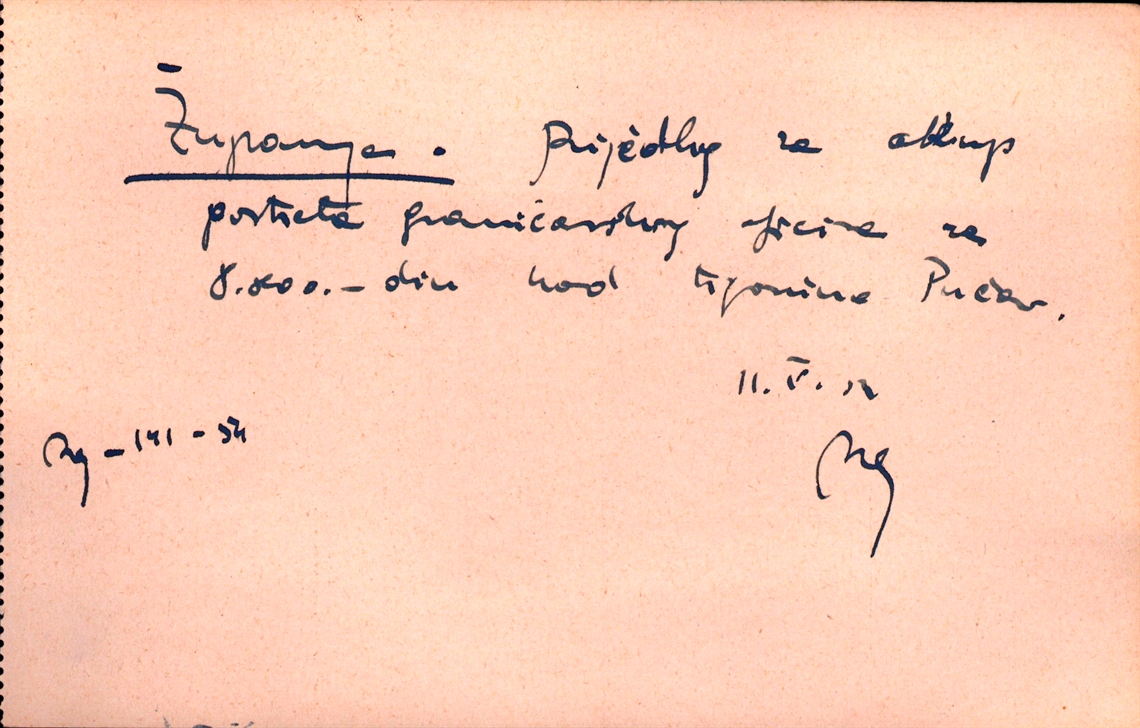 Županja. Prijedlog za otkup
portreta graničarskog oficira za
8.000.- din kod trgovine Pučar.
11. V. 54
Reg - 141 - 54